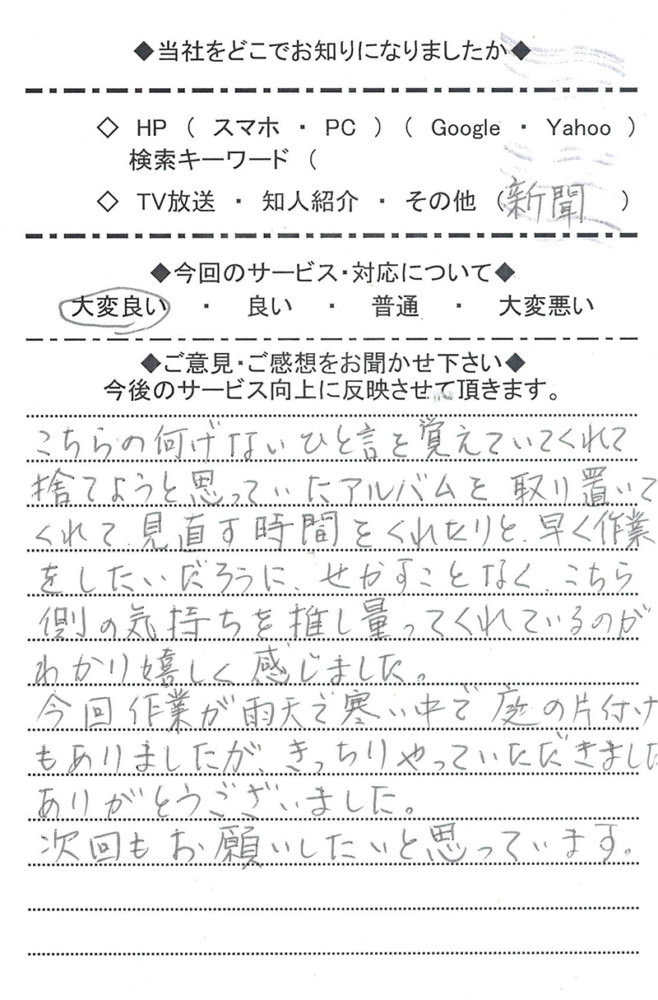 ◆当社をどこでお知りになりましたか◆
◇ HP ( スマホ ・ PC ) ( Google ・ Yahoo )
検索キーワード (
◇ TV放送 ・ 知人紹介 ・ その他 (新聞 )
◆今回のサービス・対応について◆
大変良い ・ 良い ・ 普通 ・ 大変悪い
◆ご意見・ご感想をお聞かせ下さい◆
今後のサービス向上に反映させて頂きます。
こちらの何げないひと言を覚えていてくれて
捨てようと思っていたアルバムを取り置いて
くれて、見直す時間をくれたりと、早く作業
をしたいだろうに、せかすことなく、こちら
側の気持ちを推し量ってくれているのが
わかり嬉しく感じました。
今回作業が雨天で寒い中で庭の片付け
もありましたが、きっちりやっていただきました
ありがとうございました。
次回もお願いしたいと思っています。